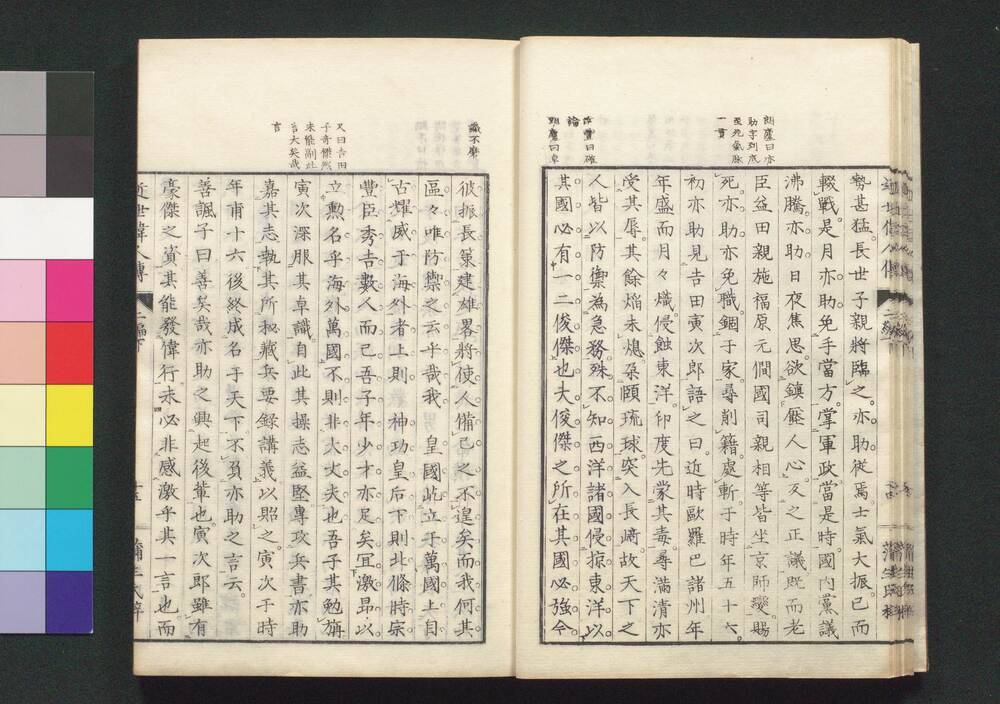 朗廬曰亦
助字到底
至死氣脉
一貫
勢甚猛長世子親將臨之亦助從焉士氣大振已而
輟戰是月亦助免手當方掌軍政當是時國内黨議
沸騰亦助日夜焦思欲鎮壓人心反之正議既而老
臣益田親施福原元僩國司親相等皆坐京師變賜
死亦助亦免職錮于家尋削籍處斬于時年五十六
初亦助見吉田寅次郎語之曰近時歐羅巴諸州年
年盛而月々熾侵蝕東洋印度先蒙其毒尋滿清亦
受其辱其餘焰未熄朶頤琉球突入長﨑故天下之
人皆以防禦為急務殊不知西洋諸國侵掠東洋以
其國必有一二俊傑也夫俊傑之所在其國必強今
曰確
論
朗廬曰卓
識不磨
彼振長策建雄畧將使人備己之不遑矣而我何其
區々唯防禦之云乎哉我 皇國屹立于萬國上自
古耀威于海外者上則 神功皇后下則北條時宗
豐臣秀吉數人而已吾子年少才亦足矣宜激昂以
立勲名乎海外萬國不則非大丈夫也吾子其勉旃
寅次深服其卓識自此其操志益堅專攻兵書亦助
嘉其志執其所秘藏兵要録講義以貽之寅次于時
年甫十六後終成名于天下不負亦助之言云
善諷子曰善矣哉亦助之興起後輩也寅次郎雖有
豪傑之資其能發偉行未必非感激乎其一言也而
又曰吉田
子奇傑然
未能副此
言大矣哉
言
近世偉人傳
二編下
十五
蒲生氏梓